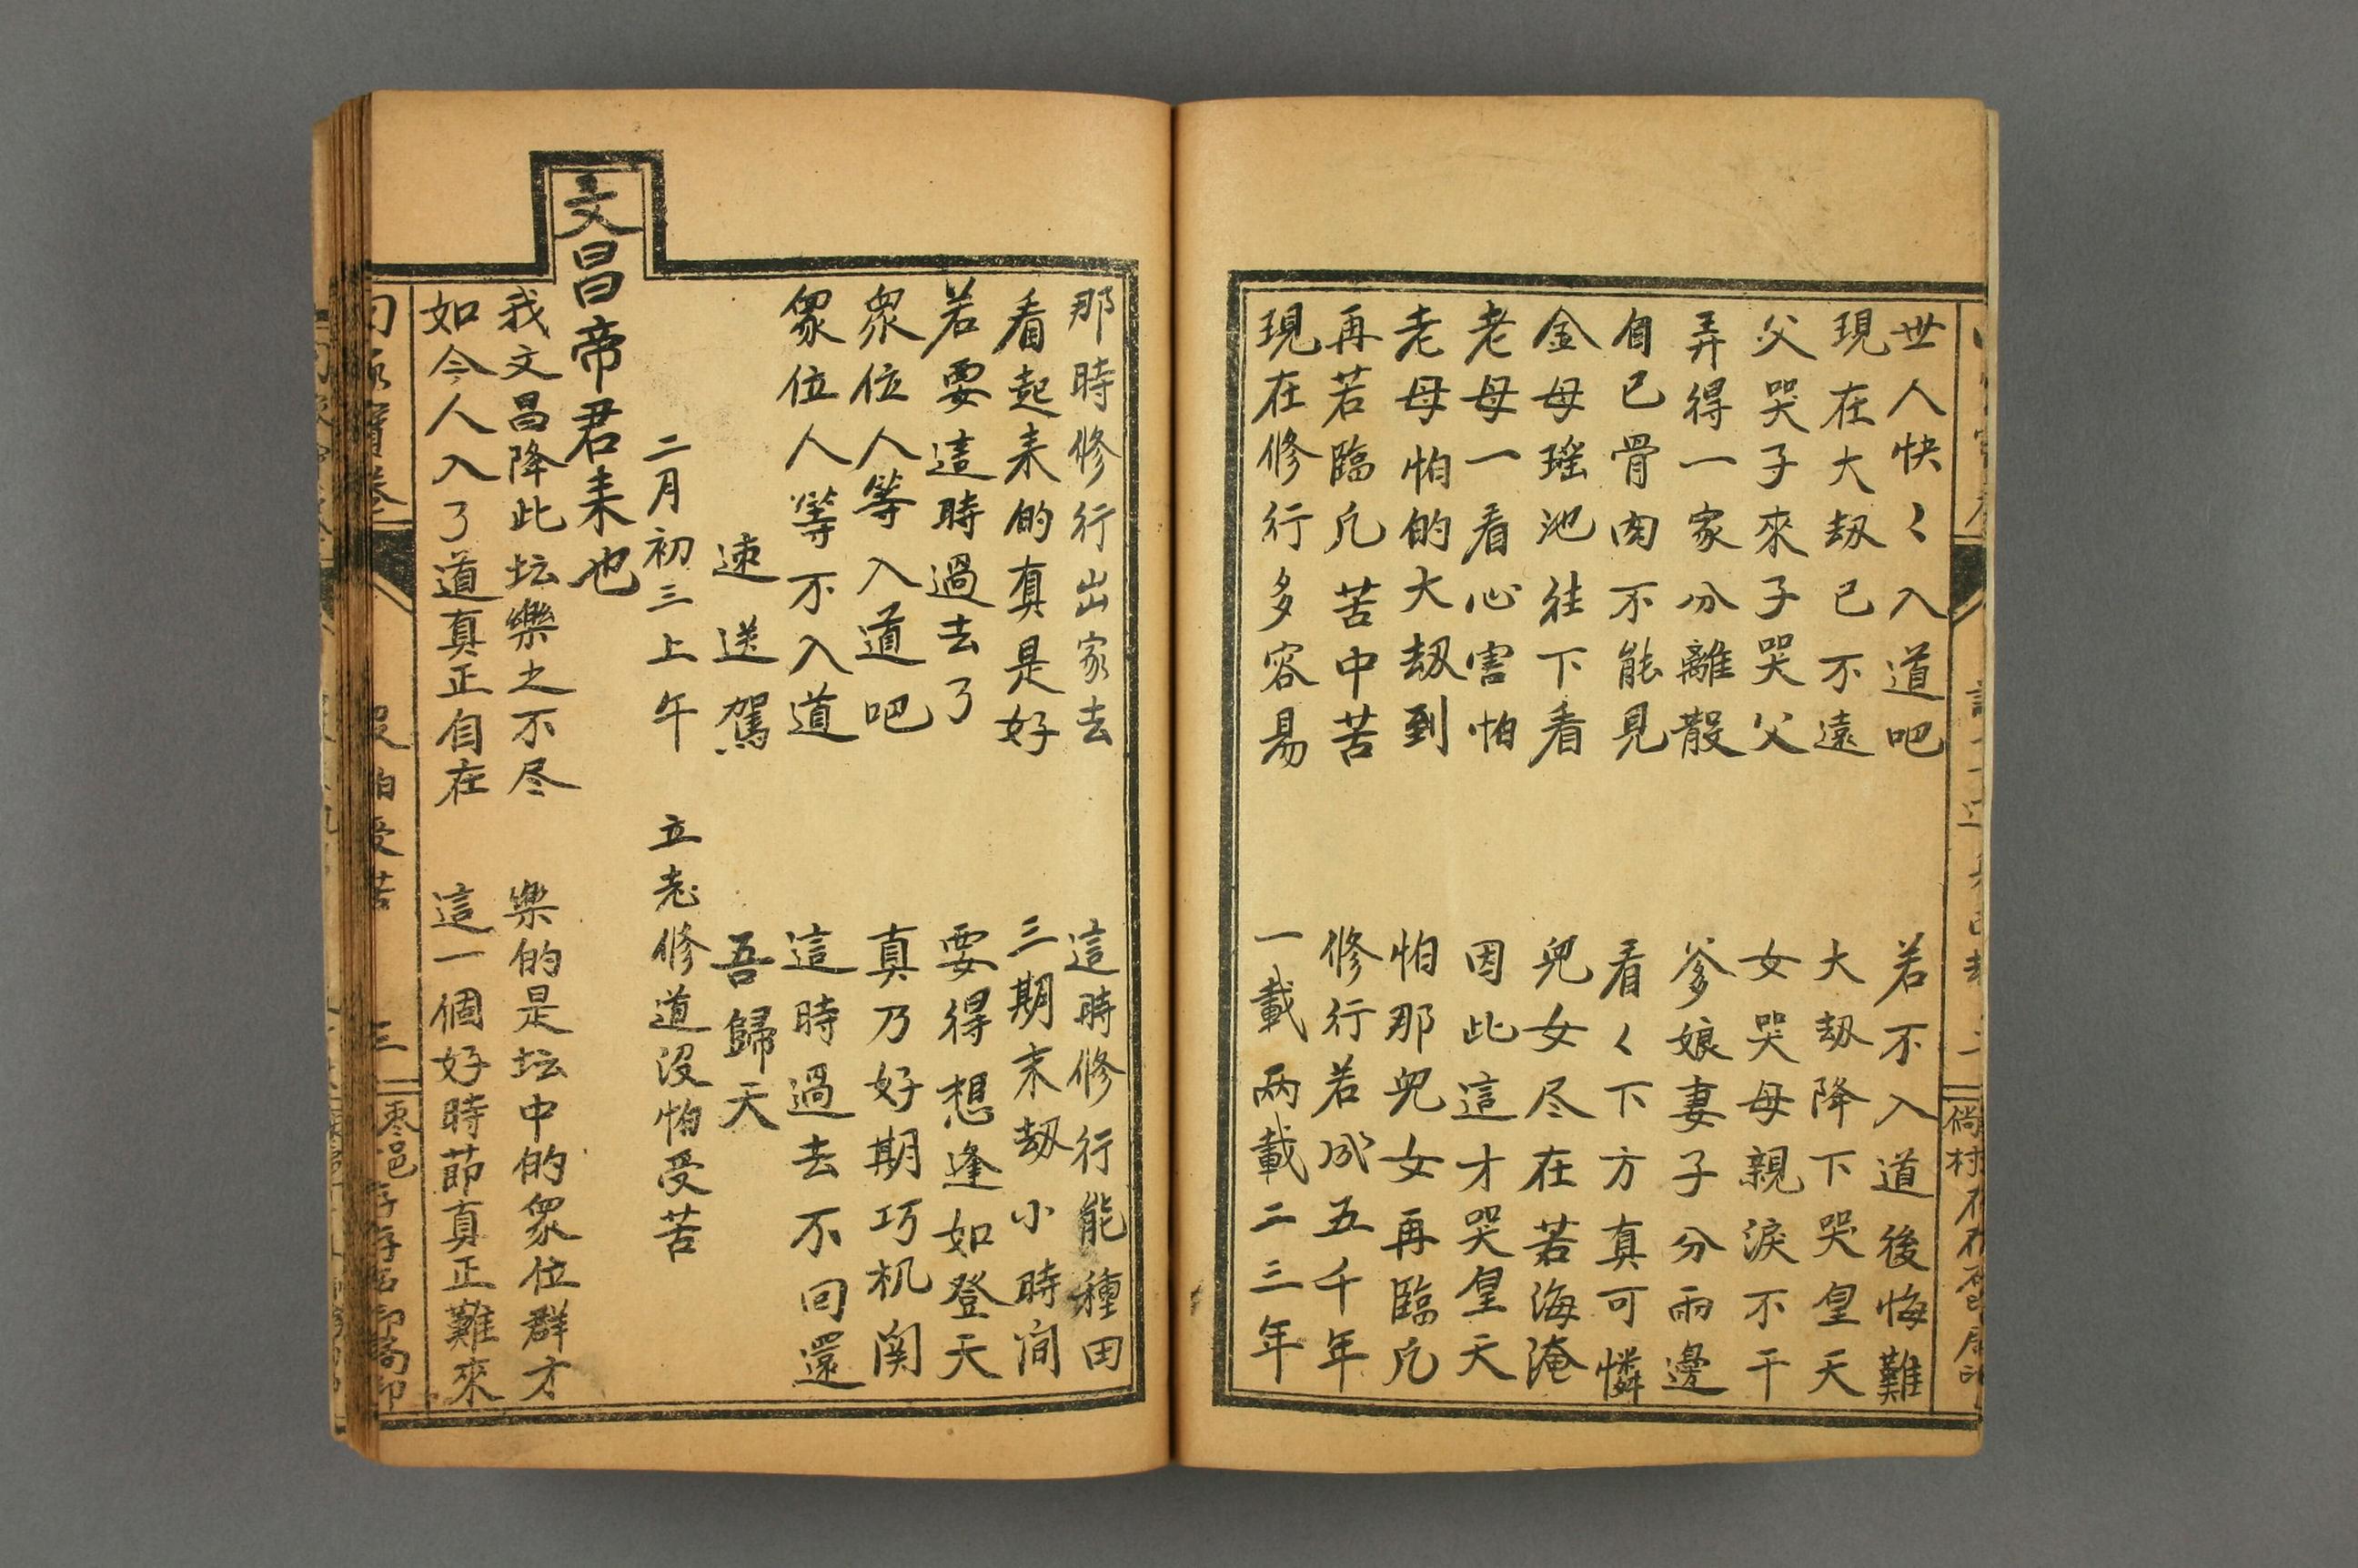 世人快〻入道吧　若不入道後悔難
現在大刼已不遠　大刼降下哭皇天
父哭子來子哭父　女哭母親淚不干
弄得一家分離散　爹娘妻子分两邊
自已骨肉不能見　看〻下方真可憐
金母瑶池往下看　兒女尽在若海淹
老母一看心害怕　因此這才哭皇天
老母怕的大刼到　怕那兒女再臨凢
再若臨凢苦中苦　修行若成五千年
現在修行多容易　一載两載二三年
那時修行出家去　這時修行能種田
看起耒的真是好　三期末刼小時間
若要這時過去了　要得想逢如登天
眾位人等入道吧　真乃好期巧机関
眾位人等不入道　這時過去不回還
速送駕　吾歸天
二月初三上午　立志修道没怕受苦
文昌帝君耒也
我文昌降此坛樂之不尽　樂的是坛中的眾位群才
如今人入了道真正自在　這一個好時節真正難來